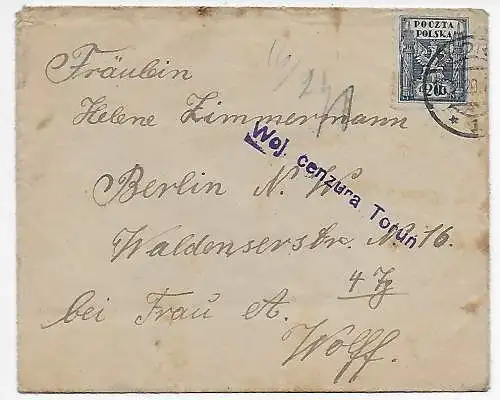 POCZTA
POLSKA
20
Fräulein
Helene Zimmermann
Woj. cenzura Toruń
Berlin N. W
Waldenserstr. No 16.
bei Frau A.
Wolff.